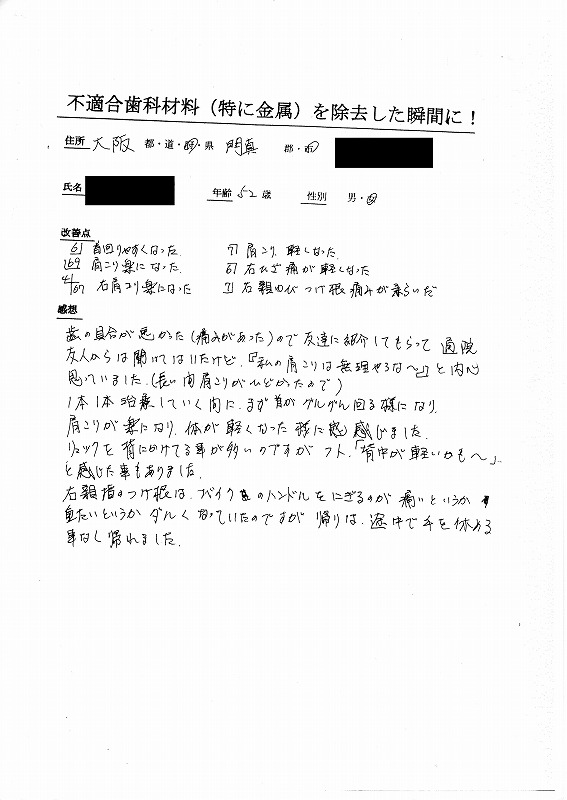 不適合歯科材料（特に金属）を除去した瞬間に！
住所 大阪 都・道・府・県 門真 郡・市
氏名 年齢 52 歳 性別 男・女
改善点
6| 首回りやすくなった。 7| 肩こり、軽くなった。
肩こり楽になった。 6| 右ひざ痛が軽くなった
右肩コリ楽になった 右親ゆび つけ根 痛みが柔らいだ
感想
歯の具合が悪かった（痛みがあった）ので友達に紹介してもらって通院
友人からは聞けてはいたけど、『私の肩こりは無理やろな〜』と内心
思っていました。（長い間肩こりがひどかったので）
1本1本治療していく間に、まず首がグルグル回る様になり、
肩こりが楽になり、体が軽くなった様に感じました。
リュックを背にかけてる事が多いのですが フト、「背中が軽いかも〜」
と感じた事もありました。
右親指のつけ根は、バイクのハンドルをにぎるのが 痛いというか
重たいというか ダルくなっていたのですが 帰りは、途中で手を休める
事なし帰れました。